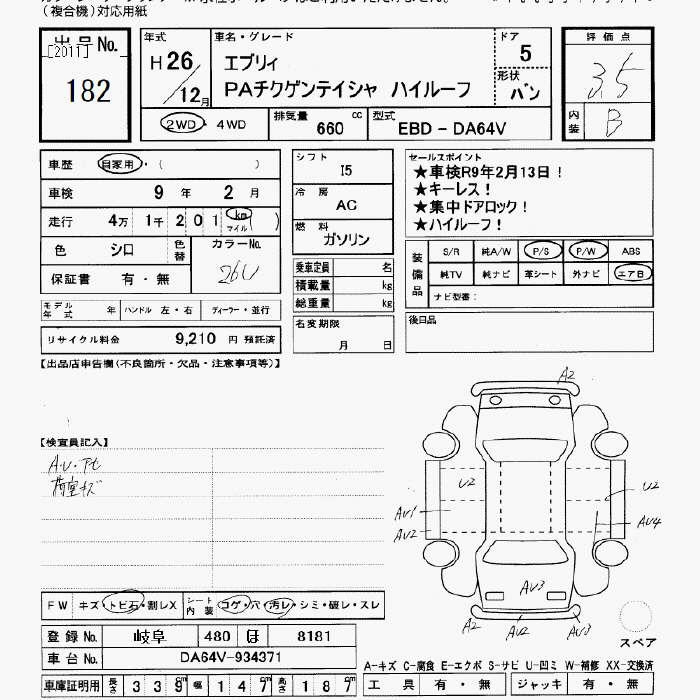 （複合機）対応用紙
出品No.
[2011]
182
年式
H26/12月
車名・グレード
エブリィ
PAチクゲンテイシャ ハイルーフ
ドア
5
形状
バン
評価点
3.5
内装
B
2WD・4WD
排気量 660 cc
型式 EBD-DA64V
車歴 自家用・( )
車検 9年 2月
走行 4万 1千 2 0 1 km マイル ( )
色 シロ
色替
カラーNo.
26U
保証書 有・無
モデル年式 年 ハンドル 左・右 ディーラー・並行
リサイクル料金 9,210 円 預託済
シフト
I5
冷房
AC
燃料
ガソリン
乗車定員 名
積載量 kg
総重量 kg
名変期限
月 日
セールスポイント
★車検R9年2月13日！
★キーレス！
★集中ドアロック！
★ハイルーフ！
装備品
S/R 純A/W P/S P/W ABS
純TV 純ナビ 革シート 外ナビ エアB
ナビ型番：
後日品
【出品店申告欄(不良箇所・欠品・注意事項等)】
【検査員記入】
AU・Pt
荷室キズ
A2
U2
U2
AU1
AU2
AU4
AU3
A2
AU2
AU3
スペア
FW キズ・トビ石・割レX
シート内装 コゲ・穴・汚レ・シミ・破レ・スレ
登録No. 岐阜 480 ほ 8181
車台No. DA64V-934371
車庫証明用 長さ 339 幅 147 高さ 187
A-キズ C-腐食 E-エクボ S-サビ U-凹ミ W-補修 XX-交換済
工具 有・無 ジャッキ 有・無